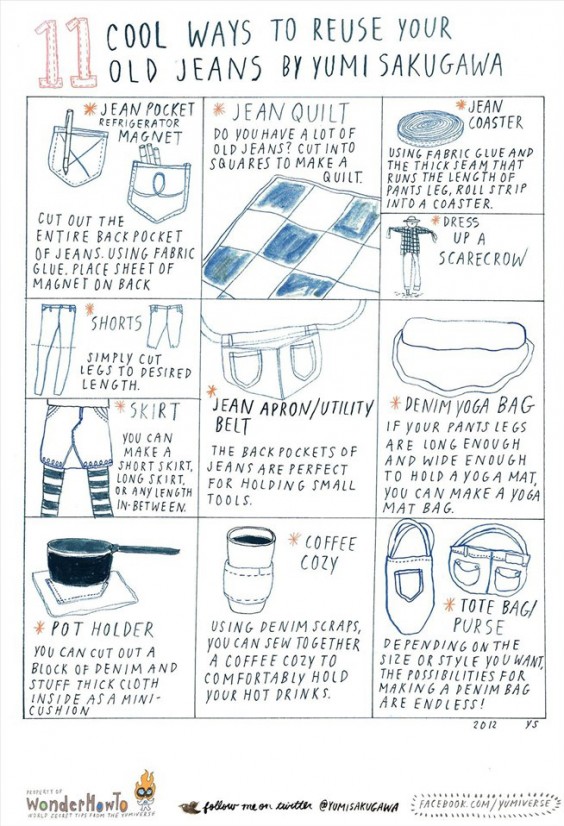 11 COOL WAYS TO REUSE YOUR
OLD JEANS BY YUMI SAKUGAWA
* JEAN POCKET
REFRIGERATOR
MAGNET
CUT OUT THE
ENTIRE BACK POCKET
OF JEANS. USING FABRIC
GLUE. PLACE SHEET OF
MAGNET ON BACK
* JEAN QUILT
DO YOU HAVE A LOT OF
OLD JEANS? CUT INTO
SQUARES TO MAKE A
QUILT.
* JEAN
COASTER
USING FABRIC GLUE AND
THE THICK SEAM THAT
RUNS THE LENGTH OF
PANTS LEG, ROLL STRIP
INTO A COASTER.
* DRESS
UP A
SCARECROW
* SHORTS
SIMPLY CUT
LEGS TO DESIRED
LENGTH.
* SKIRT
YOU CAN
MAKE A
SHORT SKIRT,
LONG SKIRT,
OR ANY LENGTH
IN-BETWEEN.
* JEAN APRON/UTILITY
BELT
THE BACK POCKETS OF
JEANS ARE PERFECT
FOR HOLDING SMALL
TOOLS.
* DENIM YOGA BAG
IF YOUR PANTS LEGS
ARE LONG ENOUGH
AND WIDE ENOUGH
TO HOLD A YOGA MAT,
YOU CAN MAKE A YOGA
MAT BAG.
* POT HOLDER
YOU CAN CUT OUT A
BLOCK OF DENIM AND
STUFF THICK CLOTH
INSIDE AS A MINI-
CUSHION
* COFFEE
COZY
USING DENIM SCRAPS,
YOU CAN SEW TOGETHER
A COFFEE COZY TO
COMFORTABLY HOLD
YOUR HOT DRINKS.
* TOTE BAG/
PURSE
DEPENDING ON THE
SIZE OR STYLE YOU WANT,
THE POSSIBILITIES FOR
MAKING A DENIM BAG
ARE ENDLESS!
2012 YS
PROPERTY OF
WonderHowTo
WORLD SECRET TIPS FROM THE YUMIVERSE
follow me on twitter @YUMISAKUGAWA
FACEBOOK.COM/YUMIVERSE